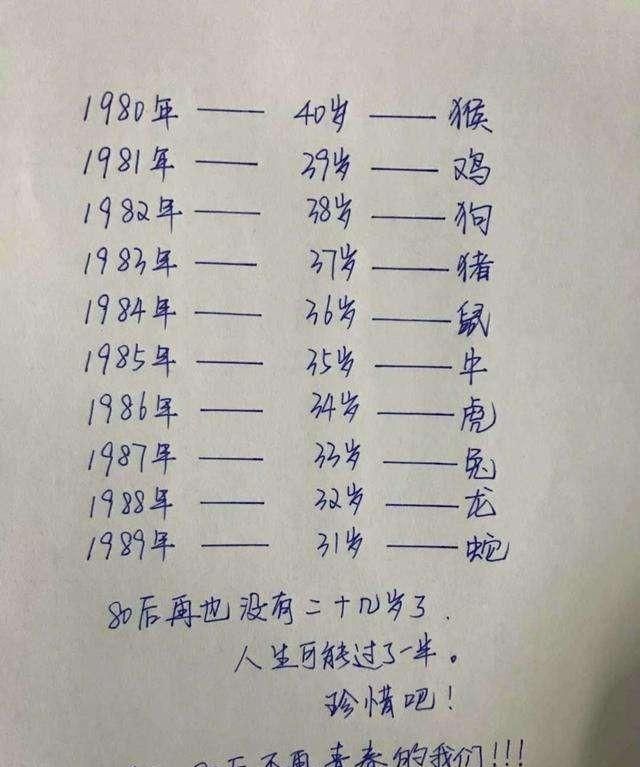 1980年 —— 40岁 —— 猴
1981年 —— 39岁 —— 鸡
1982年 —— 38岁 —— 狗
1983年 —— 37岁 —— 猪
1984年 —— 36岁 —— 鼠
1985年 —— 35岁 —— 牛
1986年 —— 34岁 —— 虎
1987年 —— 33岁 —— 兔
1988年 —— 32岁 —— 龙
1989年 —— 31岁 —— 蛇
80后再也没有二十几岁了.
人生可能过了一半。
珍惜吧!
后不再青春的我们!!!